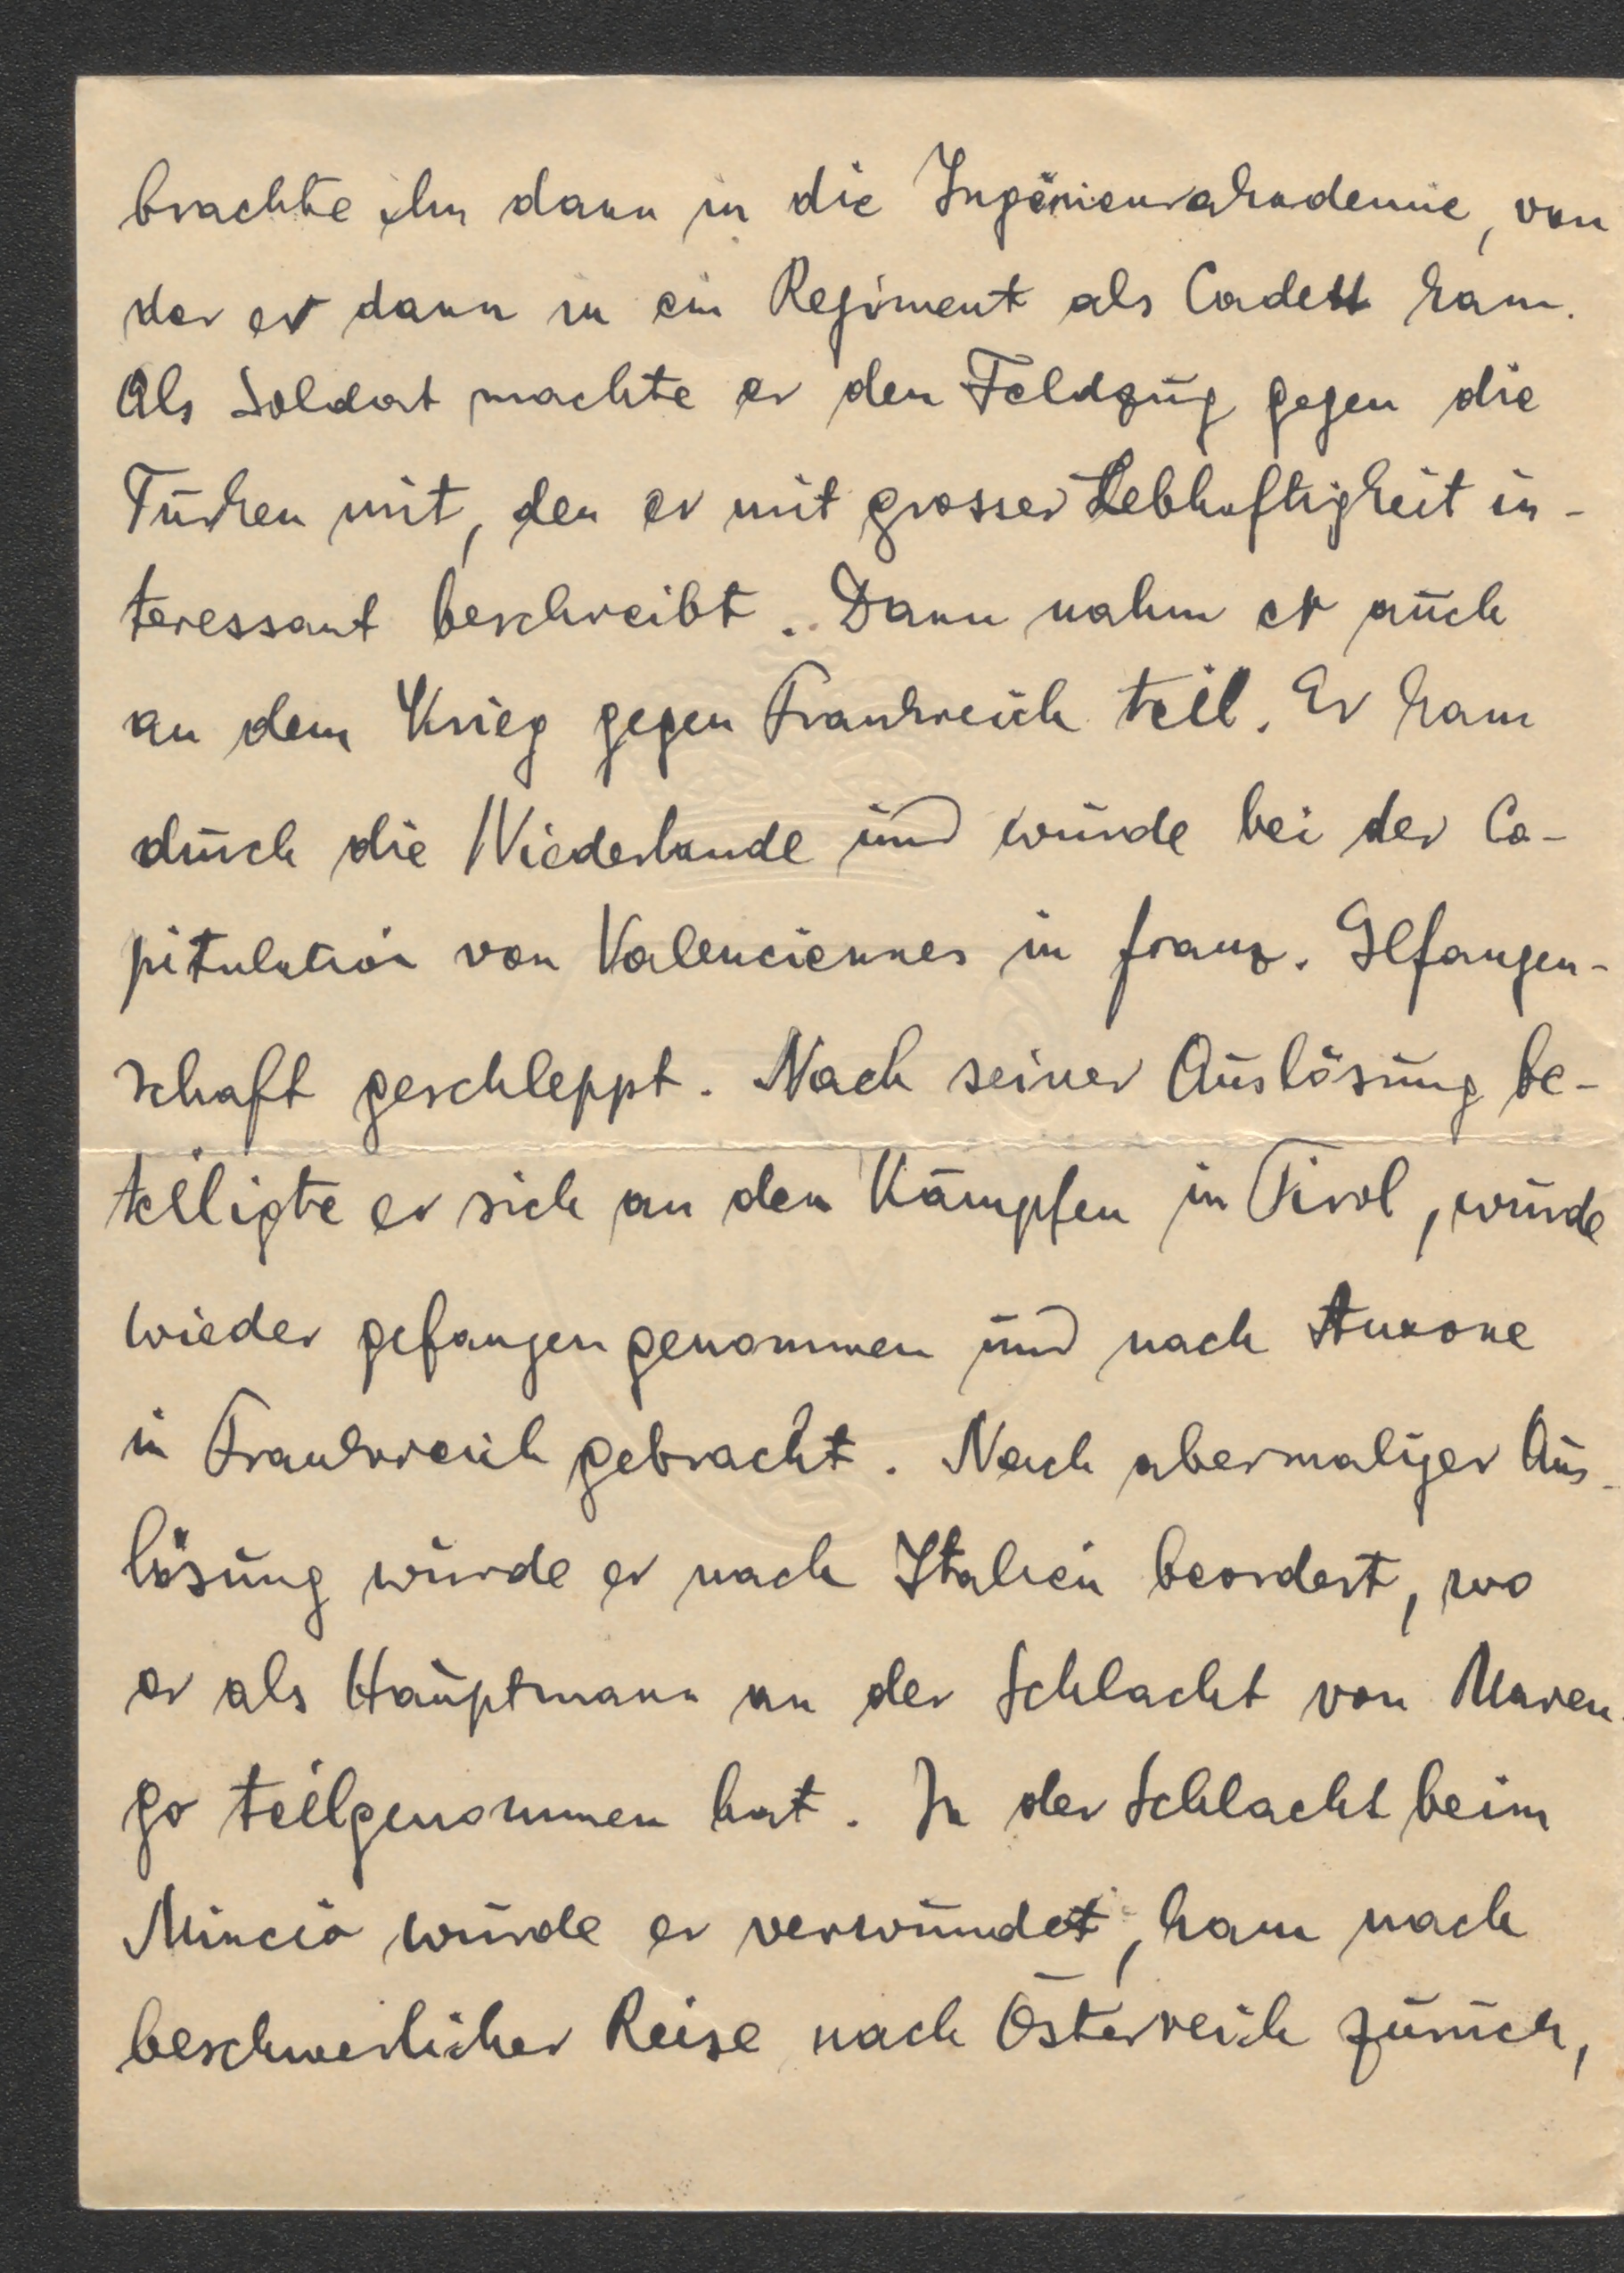 brachte ihn dann in die Ingenieurakademie, von
der er dann in ein Regiment als Cadett kam.
Als Soldat machte er den Feldzug gegen die
Türken mit, den er mit grosser Lebhaftigkeit in-
teressant beschreibt. Dann nahm er auch
an dem Krieg gegen Frankreich teil. Er kam
durch die Niederlande und wurde bei der Ca-
pitulation von Valenciennes in franz. Gefangen-
schaft geschleppt. Nach seiner Auslösung be-
teiligte er sich an den Kämpfen in Tirol, wurde
wieder gefangen genommen und nach Auxone
in Frankreich gebracht. Nach abermaliger Aus-
lösung wurde er nach Italien beordert, wo
er als Hauptmann an der Schlacht von Maren-
go teilgenommen hat. In der Schlacht beim
Mincio wurde er verwundet, kam nach
beschwerlicher Reise nach Österreich zurück,